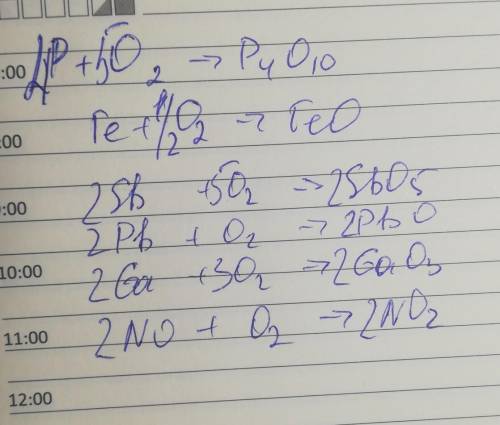 4P + 5O2 → P4O10
:00
Fe + 1/2O2 → FeO
:00
2Sb + 5O2 → 2SbO5
9:00
2Pb + O2 → 2PbO
10:00
2Ga + 3O2 → 2GaO3
11:00
2NO + O2 → 2NO2
12:00